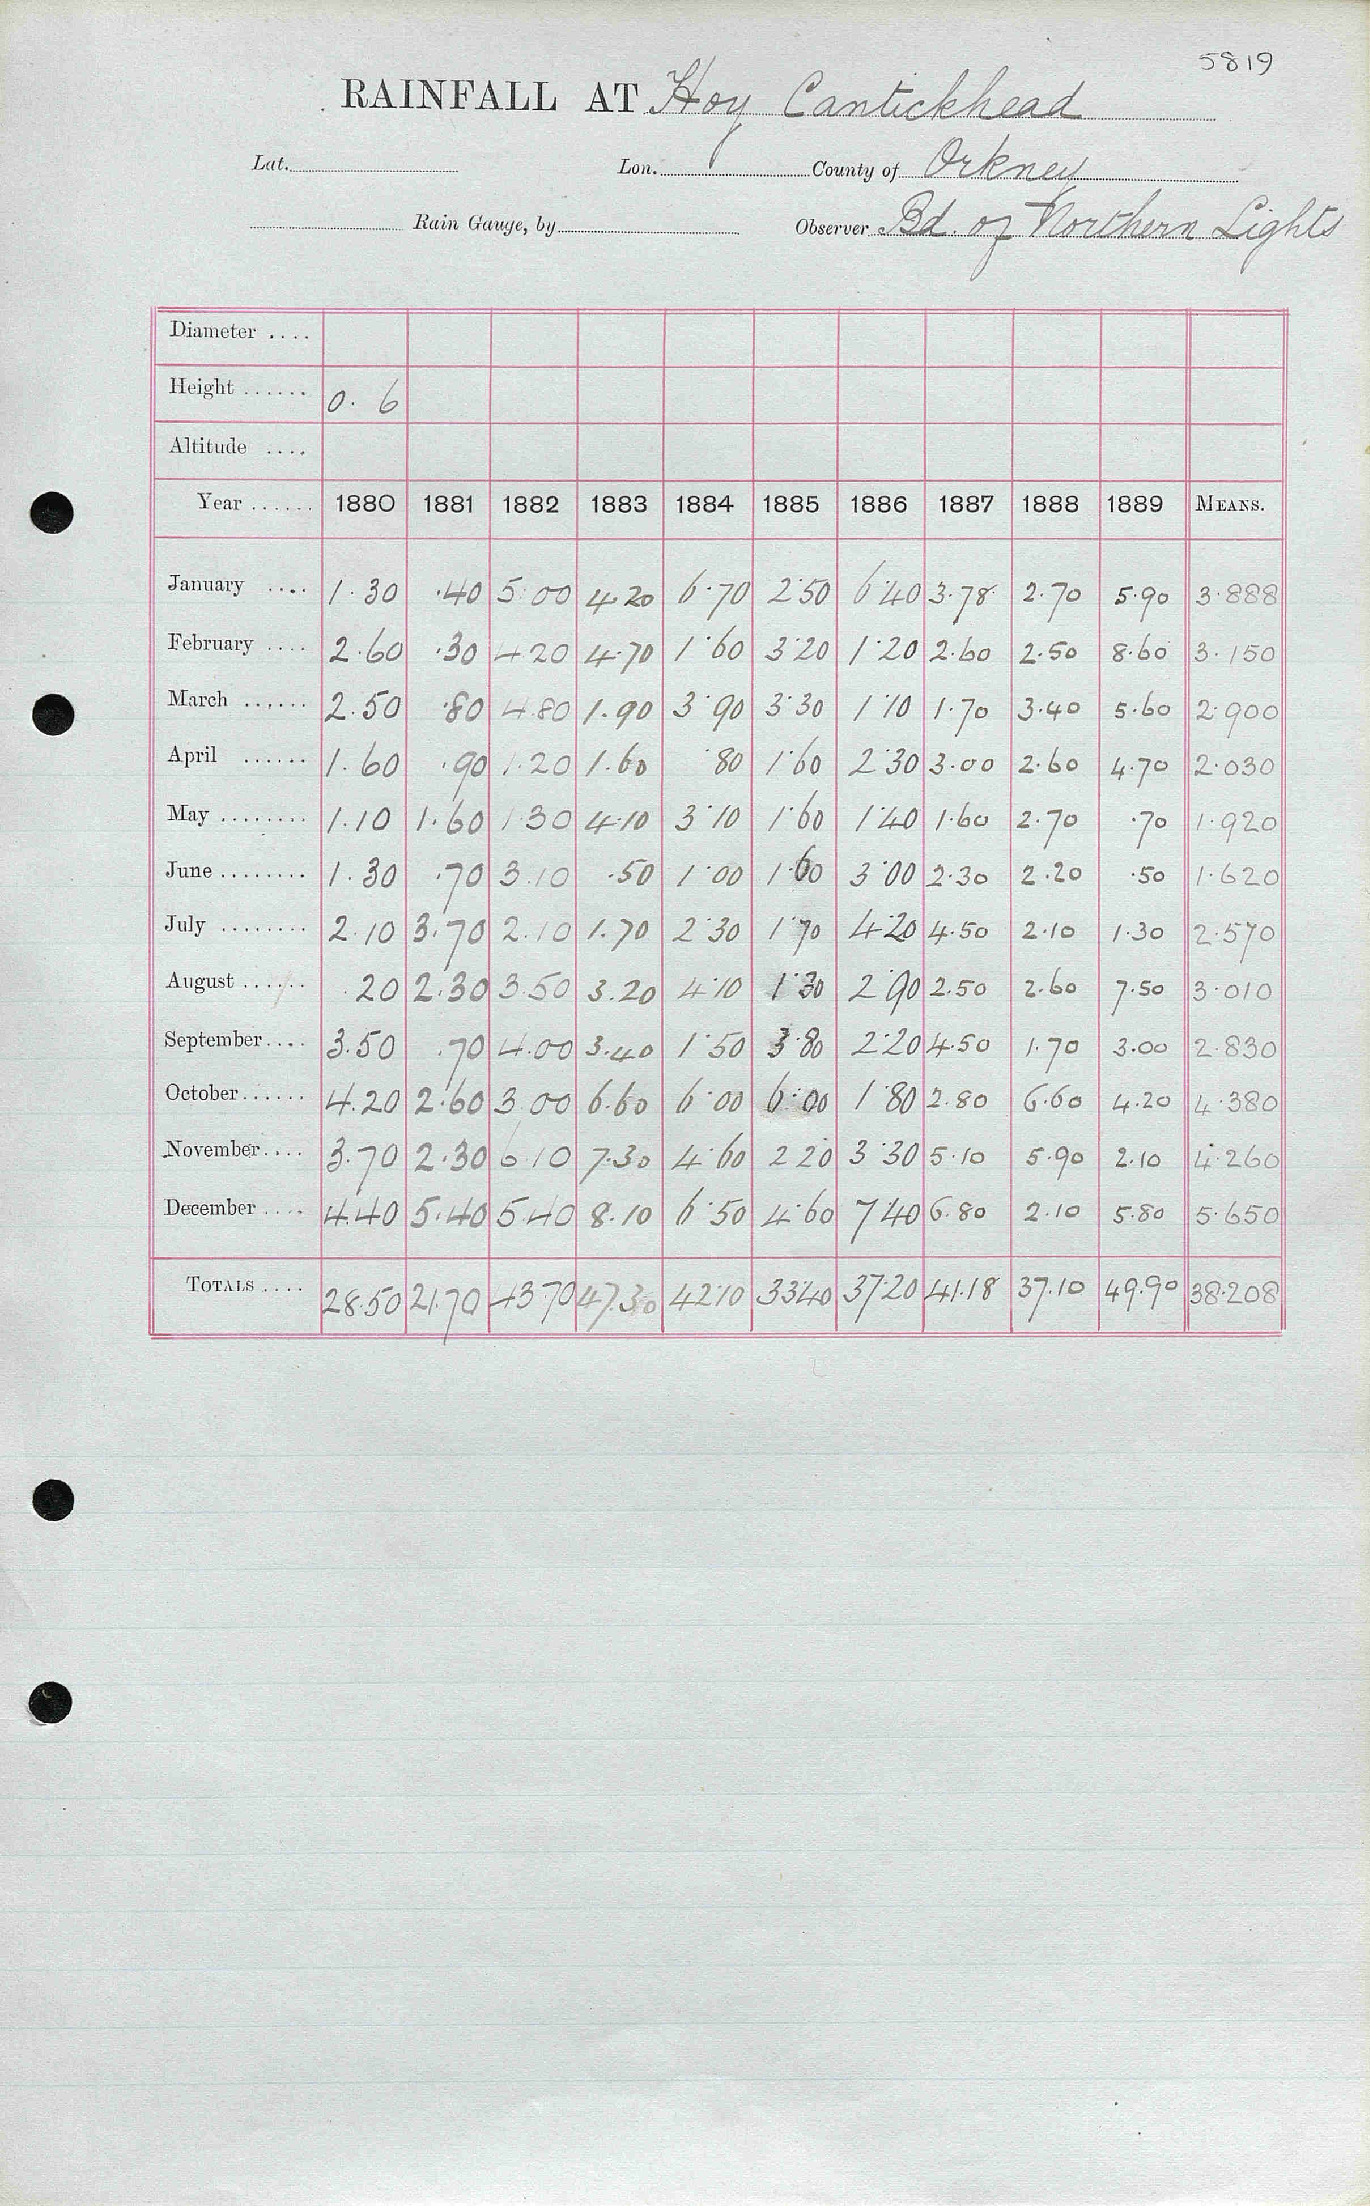 5819
RAINFALL AT Hoy Cantickhead
Lat. Lon. County of Orkney
Rain Gauge, by Observer Bd. of Northern Lights
Diameter ....
Height ...... 0. 6
Altitude ....
Year ...... 1880 1881 1882 1883 1884 1885 1886 1887 1888 1889 MEANS.
January .... 1.30 .40 5.00 4.20 6.70 2.50 6.40 3.78 2.70 5.90 3.888
February .... 2.60 .30 4.20 4.70 1.60 3.20 1.20 2.60 2.50 8.60 3.150
March ...... 2.50 .80 4.80 1.90 3.90 3.30 1.10 1.70 3.40 5.60 2.900
April ...... 1.60 .90 1.20 1.60 .80 1.60 2.30 3.00 2.60 4.70 2.030
May ........ 1.10 1.60 1.30 4.10 3.10 1.60 1.40 1.60 2.70 .70 1.920
June ........ 1.30 .70 3.10 .50 1.00 1.60 3.00 2.30 2.20 .50 1.620
July ........ 2.10 3.70 2.10 1.70 2.30 1.70 4.20 4.50 2.10 1.30 2.570
August ...... .20 2.30 3.50 3.20 4.10 1.30 2.90 2.50 2.60 7.50 3.010
September.... 3.50 .70 4.00 3.40 1.50 3.80 2.20 4.50 1.70 3.00 2.830
October...... 4.20 2.60 3.00 6.60 6.00 6.00 1.80 2.80 6.60 4.20 4.380
November.... 3.70 2.30 6.10 7.30 4.60 2.20 3.30 5.10 5.90 2.10 4.260
December .... 4.40 5.40 5.40 8.10 6.50 4.60 7.40 6.80 2.10 5.80 5.650
TOTALS .... 28.50 21.70 43.70 47.30 42.10 33.40 37.20 41.18 37.10 49.90 38.208